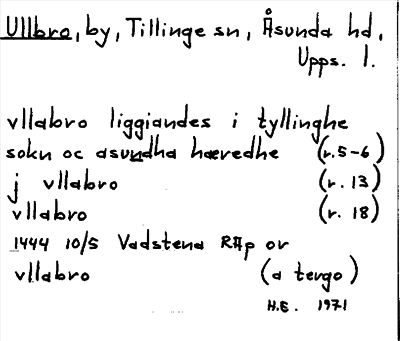 Ullbro, by, Tillinge sn, Åsunda hd,
Upps. l.
vllabro liggiandes i tyllinghe
sokn oc asundha hæredhe (r.5-6)
j vllabro (r. 13)
vllabro (r. 18)
1444 10/5 Vadstena RAp or
vllabro (a tergo)
H.E. 1971